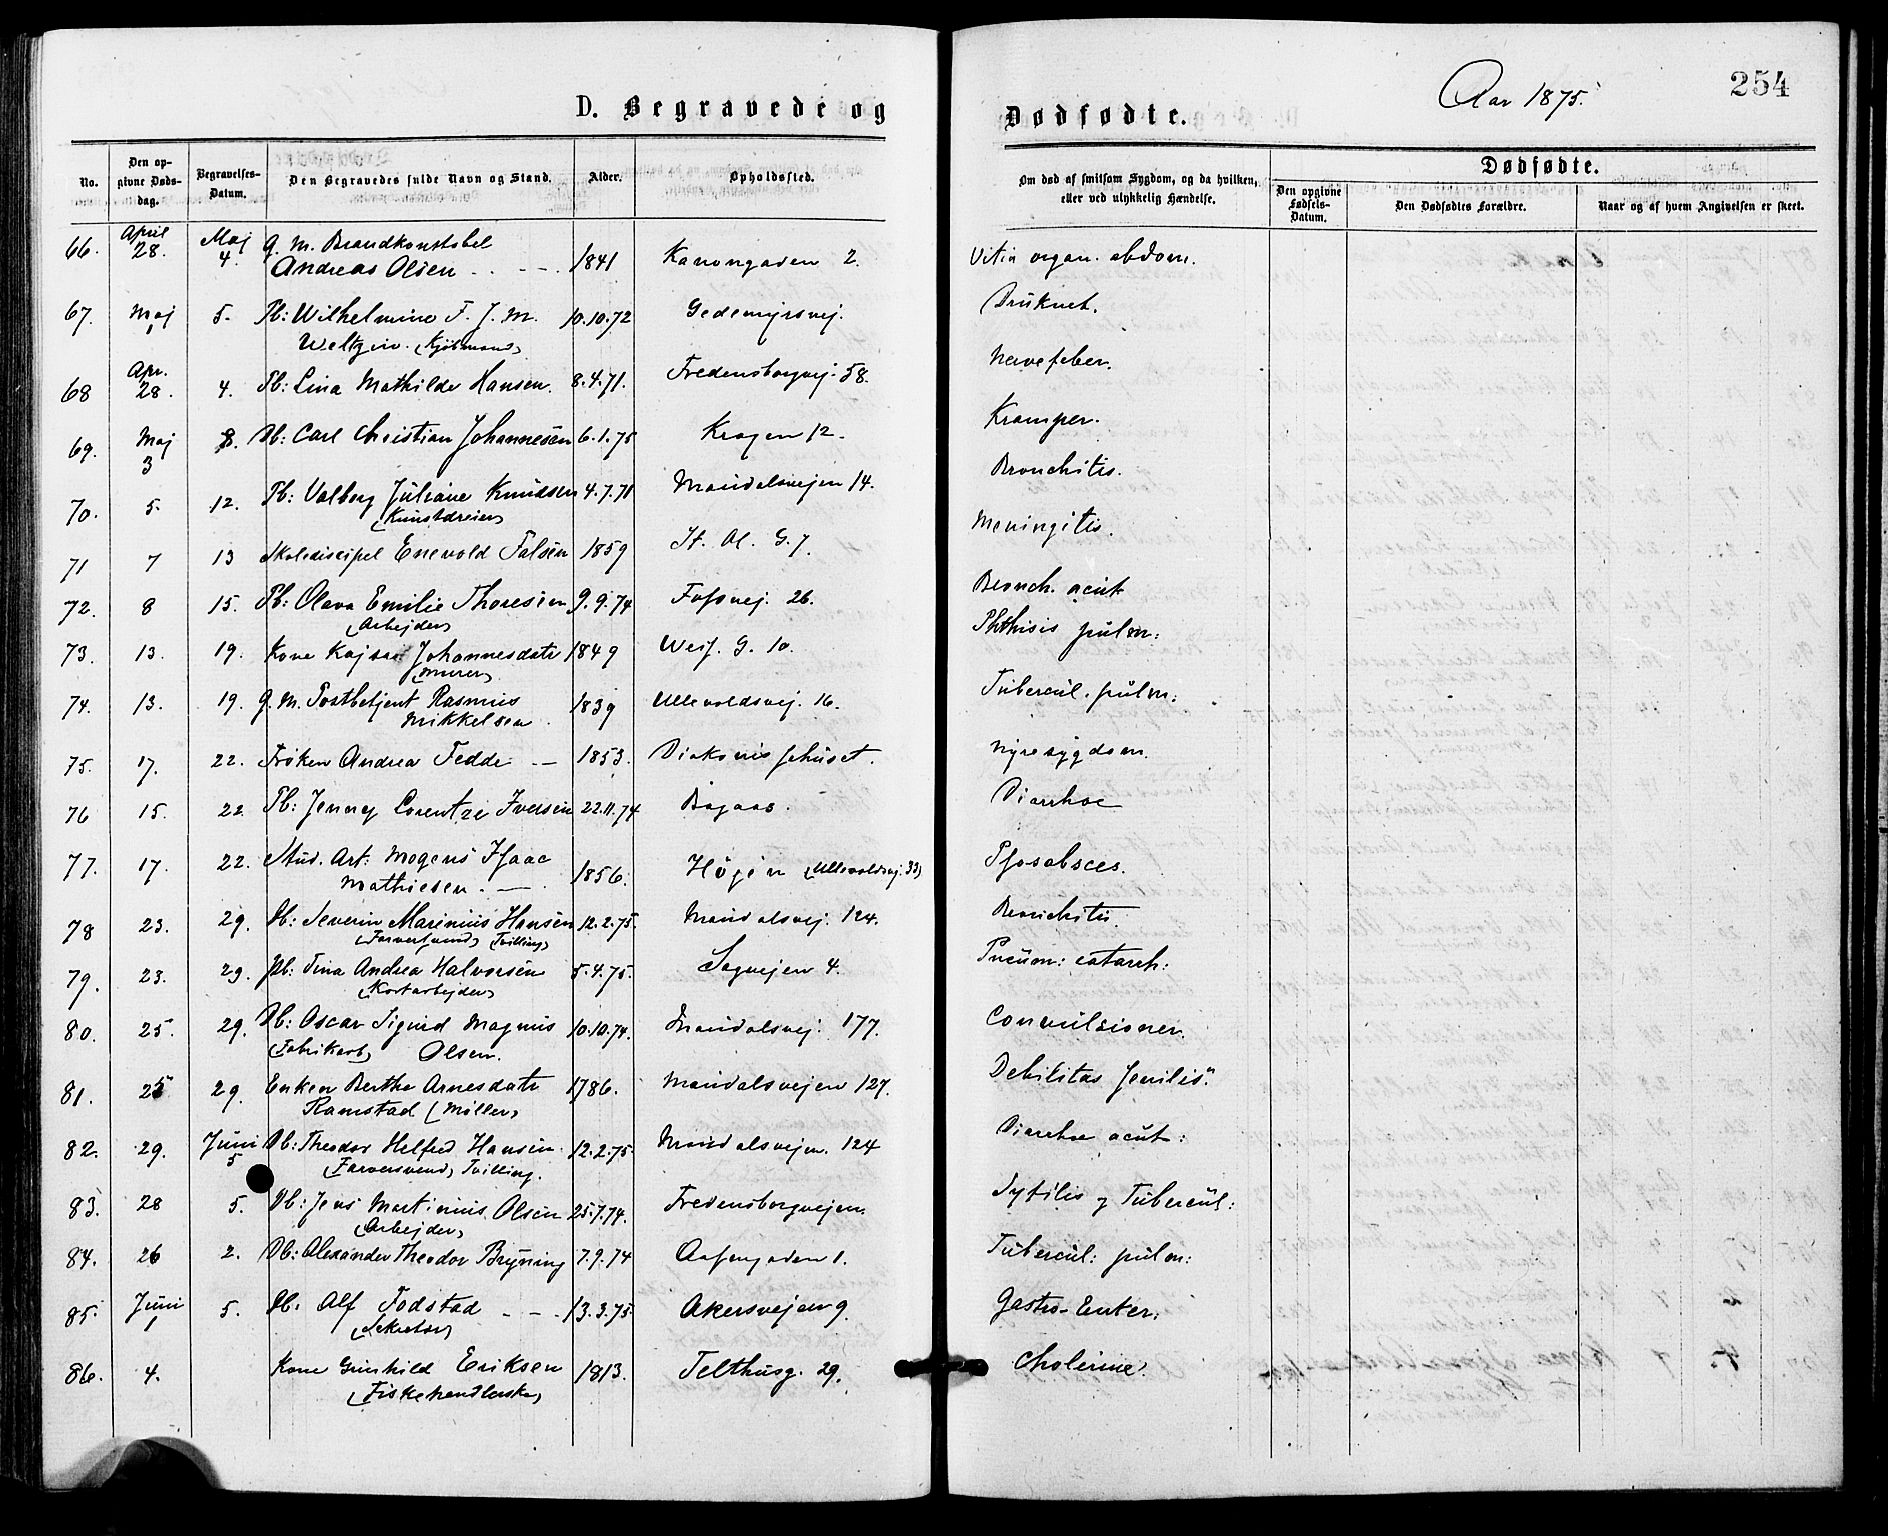 D. Begravede og Dødfødte.
Aar 1875.
254
No.
Den opgivne Dødsdag.
Begravelses-Datum.
Den Begravedes fulde Navn og Stand.
Alder.
Opholdssted.
Om død af smitsom Sygdom, og da hvilken, eller ved ulykkelig Hændelse.
Dødfødte.
Den opgivne Fødsels-Datum.
Den Dødfødtes Forældre.
Naar og af hvem Angivelsen er skeet.
66. April 28. Maj 4. g. m. Brandkonstabel
Andreas Olsen 1841 Kanongaden 2. Vitia organ. abdom.
67. Maj 1 5. Pb: Wilhelmine F. J. M. 10.10.72 Gedemyrsvej. Druknet.
(Kjøbmand)
68 Apr. 28. 4. Pb: Lina Mathilde Hansen. 8.4.71. Fredensborgvej. 58. Nervefeber.
69. Maj 3 8. Db: Carl Christian Johannesen 6.1.75 Krogen 12. Kramper.
70. 5. 12. Pb: Valborg Juliane Knudsen 4.7.71 Maridalsvejen 14. Bronchitis.
(Kunstdreier)
71 7 13 Skoledicipel Enevold Falsen 1859 St. Ol. G. 7. Meningitis.
72. 8 15. Pb: Olava Emilie Thoresen 9.9.74 Fossvej. 26. Bronch. acut
(Arbejder)
73. 13. 19. Kone Kajsa Johannesdatr 1849 Wess. G. 10. Phthisis pulm:
(Murer)
74. 13. 19. g. m. Postbetjent Rasmus
Mikkelsen 1839 Ullevoldsvej. 16. Tubercul. pulm:
75. 17. 22. Frøken Andrea Fedde 1853. Diakonissehuset. Nyresygdom.
76 15. 22. Pb: Jenny Lorentze Iversen 22.11.74 Bagaas. Diarrhoe
77. 17. 22. Stud. Art: Mogens Isaac
Mathiesen. 1856. Høgen (Ullevoldsvej. 33) Psosabsces.
78 23. 29. Db: Severin Marinius Hansen 12.2.75. Maridalsvej. 124. Bronchitis
(Farversvend) Tvilling)
79. 23. 29. Pb: Tina Andrea Halvorsen 5.4.75. Sagvejen 4. Pneum: catarrh:
(Kortarbejder)
80. 25. 29. Db: Oscar Sigurd Magnus 10.10.74. Maridalsvej. 177. Convulsioner.
(Fabrikarb) Olsen.
81. 25 29. Enken Berthe Arnesdatr 1786. Maridalsvejen 127. Debilitas senilis.
Ramstad (Møller)
82. 29. Juni 5 Db: Theodor Helfred Hansen. 12.2.75. Maridalsvejen. 124 Diarrhoe acut:
(Farversvend) Tvilling.
83. 28 5. Db: Jens Martinius Olsen 25.7.74. Fredensborgvejen. Syfilis og Tubercul:
(Arbejder)
84. 26 2. Db: Alexander Theodor Bryning 7.9.74 Aasengaden 1. Tubercul: pulm:
85. Juni 1 5. Db: Alf Fodstad 13.3.75. Akersvejen 9. Gastro-Enter.
(Sekretær)
86. 4. Kone Gunhild Eriksen 1813. Telthusg. 29. Cholerine.
(Fiskehandlerske)